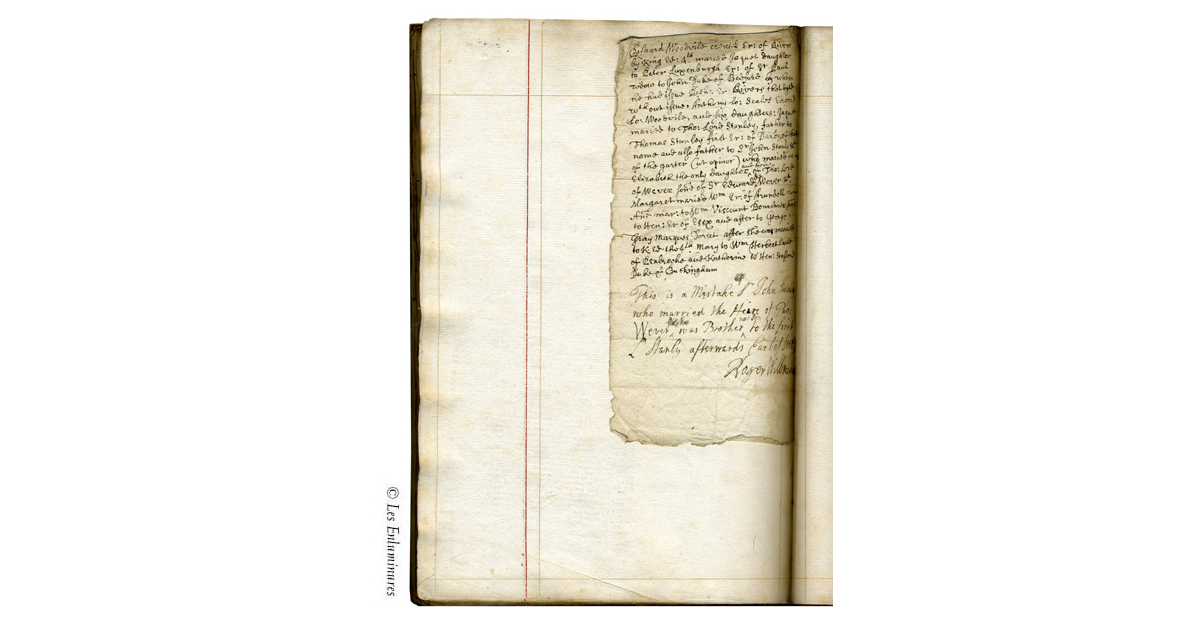 Richard Woodvile created Er: of River
by King Ed: 4th maried Jaquet daughter
to Peter Luxenburgh Er: of St Paul
widow to John Duke of Bedford by whom
he had issue Rich: Er Rivers that dyed
wthout issue, Anthony Lo: Scales
Lo: Woodvile, and six daughters; Jaquet
maried to Tho: Lord Stanley, father to
Thomas Stanley first Er: of Darby of that
name and also father to Sr John Stanly Kt
of the garter (ut opinor) who maried
Elizabeth the only daughter and heire Tho: Lord
of Wever sone of Sr Edward Wever Kt
Margaret maried Wm Er: of Arundell
Ane mar: to Wm Viscount Bourchier
to Hen: Er of Essx and after to George
Gray Marques Dorset after she was maried
to K Ed the 4th Mary to Wm Herbert Earle
of Penbrooke and Katherine to Hen: Stafford
Duke of Buckingham
This is a Mistake Sr John
who married the Heire of Tho:
Wever was Brother to the first
Ld Stanly afterwards Earl of
Roger
© Les Enluminures